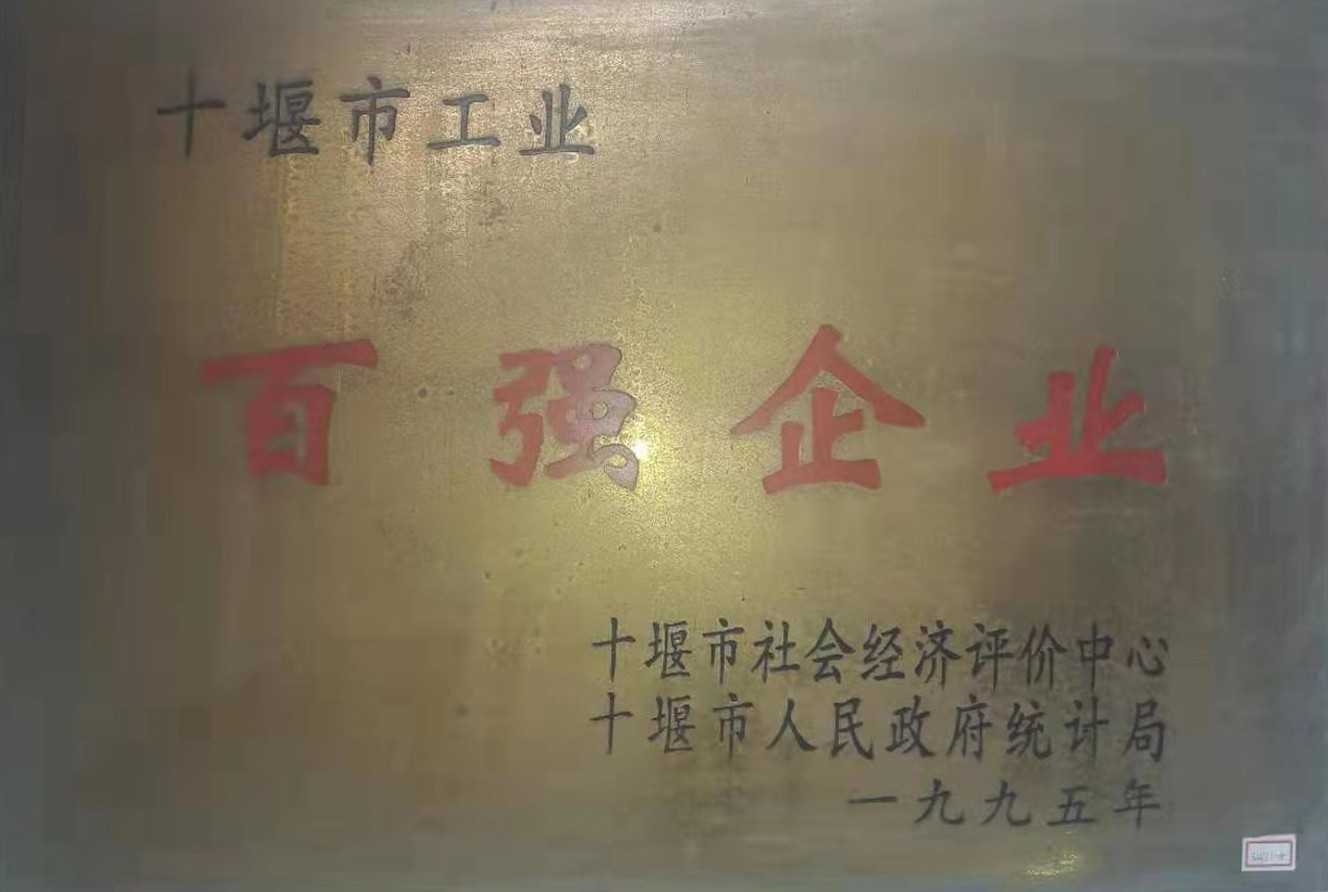 十堰市工业
百强企业
十堰市社会经济评价中心
十堰市人民政府统计局
一九九五年